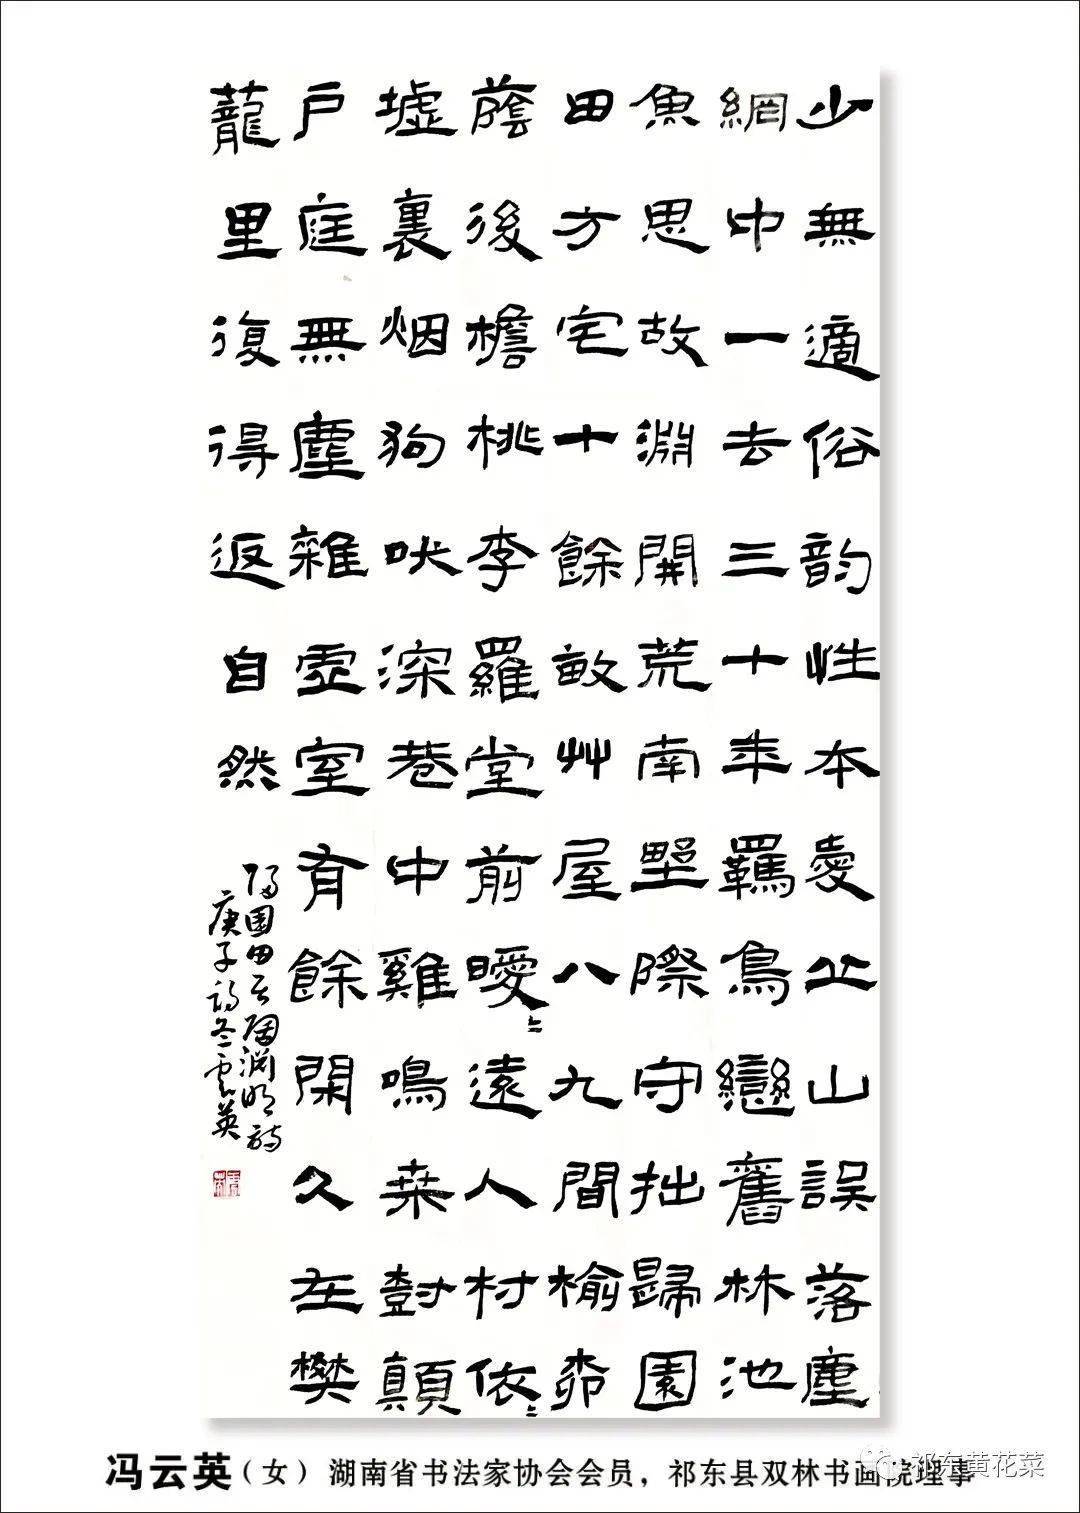 少無適俗韵性本愛丘山誤落塵
網中一去三十年羈鳥戀舊林池
魚思故淵開荒南野際守拙歸園
田方宅十餘畝艸屋八九間榆柳
蔭後檐桃李羅堂前曖〻遠人村依〻
墟裏烟狗吠深巷中雞鳴桑尌顛
戶庭無塵雜虛室有餘閑久在樊
蘢里復得返自然
歸園田居陶淵明詩
庚子初冬雲英
冯云英（女）湖南省书法家协会会员，祁东县双林书画院理事
祁东黄花菜